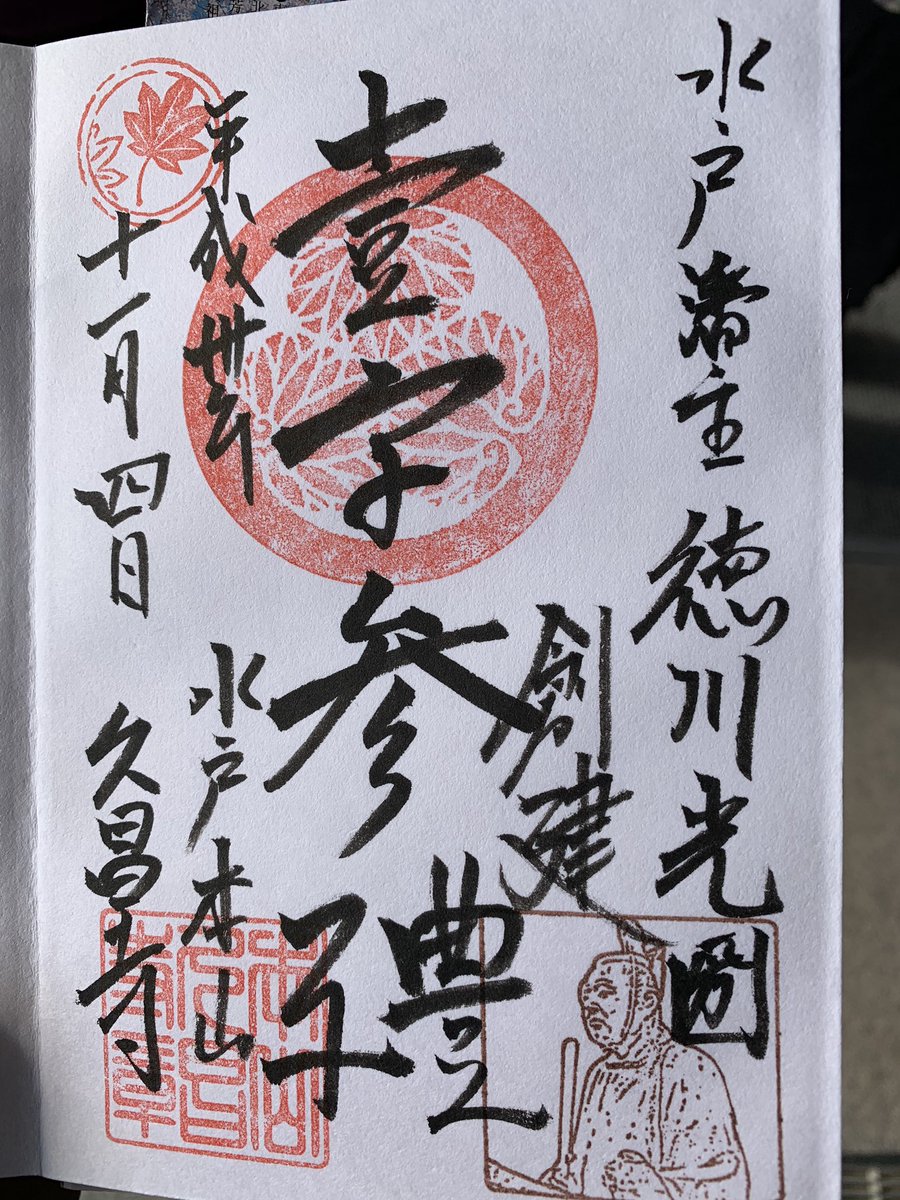 水戸藩主 徳川光圀
創建
壹字参禮
平成丗年
十一月四日
水戸本山
久昌寺